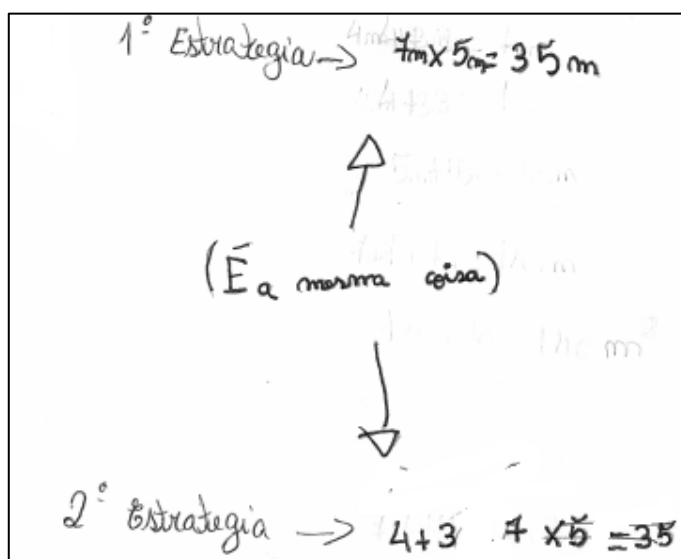 1º Estrategia → 7m x 5m = 35 m
(É a mesma coisa)
2º Estrategia → 4+3 7 x 5 = 35